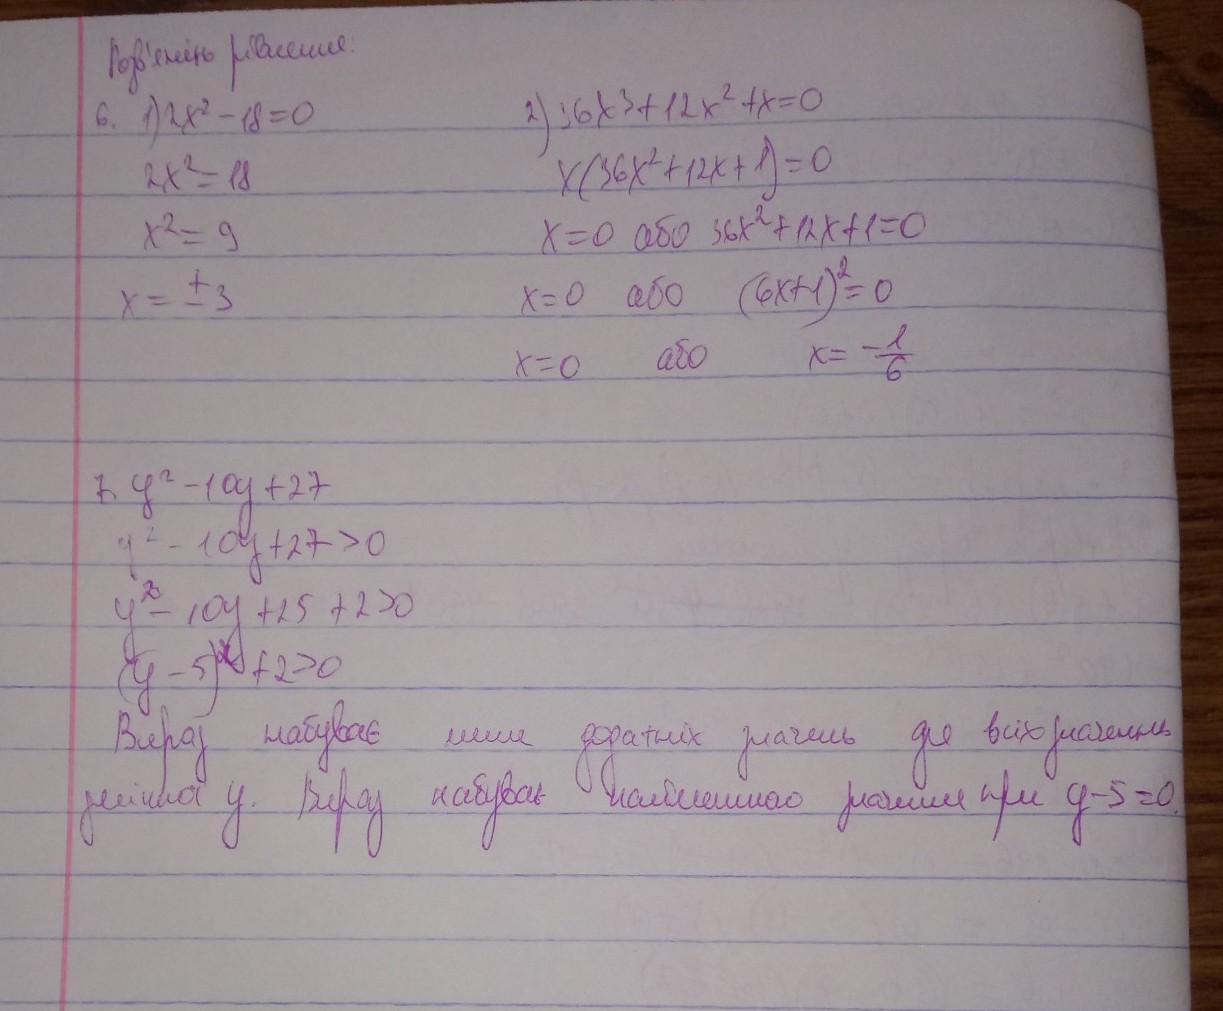 Розв'яжіть рівняння:
6. 1) 2x² - 18 = 0
2x² = 18
x² = 9
x = ± 3
2) 36x³ + 12x² + x = 0
x(36x² + 12x + 1) = 0
x = 0 або 36x² + 12x + 1 = 0
x = 0 або (6x + 1)² = 0
x = 0 або x = -1/6
7. y² - 10y + 27
y² - 10y + 27 > 0
y² - 10y + 25 + 2 > 0
(y - 5)² + 2 > 0
Вираз набуває лише додатніх значень для всіх значень
змінної y. Вираз набуває найменшого значення при y - 5 = 0.